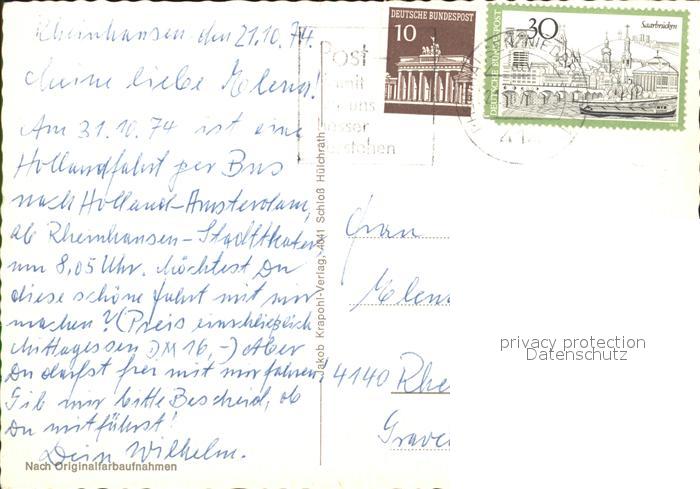 Rheinhausen den 21.10.74.
Meine liebe Elena!
Am 31.10.74 ist eine
Hollandfahrt per Bus
nach Holland-Amsterdam,
ab Rheinhausen-Stadttheater,
um 8,05 Uhr. Möchtest Du
diese schöne Fahrt mit mir
machen? (Preis einschließlich
Mittagessen DM 16,-) Aber
Du darfst frei mit mir fahren.
Gib mir bitte Bescheid, ob
Du mitfährst!
Dein Wilhelm.
Nach Originalfarbaufnahmen
Jakob Krapohl-Verlag, 4041 Schloß Hülchrath
Post
mit
uns
DEUTSCHE BUNDESPOST
10
DEUTSCHE BUNDESPOST
30
Saarbrücken
Frau
Elen
4140 Rhe
Grave
privacy protection
Datenschutz